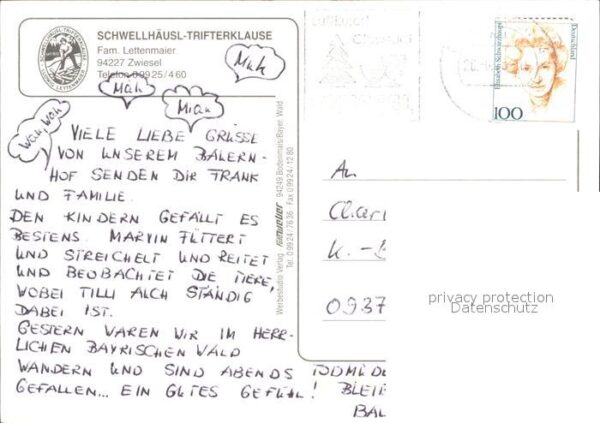 SCHWELLHÄUSL-TRIFTERKLAUSE
Fam. Lettenmaier
94227 Zwiesel
Telefon 09925/460
Muh
Mäh
Miau
Wau, wau
VIELE LIEBE GRÜSSE
VON UNSEREM BAUERN-
HOF SENDEN DIR FRANK
UND FAMILIE.
DEN KINDERN GEFÄLLT ES
BESTENS. MARVIN FÜTTERT
UND STREICHELT UND REITET
UND BEOBACHTET DIE TIERE,
WOBEI TILLI AUCH STÄNDIG
DABEI IST.
GESTERN WAREN WIR IM HERR-
LICHEN BAYRISCHEN WALD
WANDERN UND SIND ABENDS TODMÜD
GEFALLEN... EIN GUTES GEFÜHL! BLEIB
BAL
Werbestudio Verlag 94249 Bodenmais/Bayer. Wald
Tel. 09924/7636 Fax 09924/1280
Elisabeth Schwarzhaupt
Deutschland
100
An
Clari
K.-
0937
privacy protection
Datenschutz